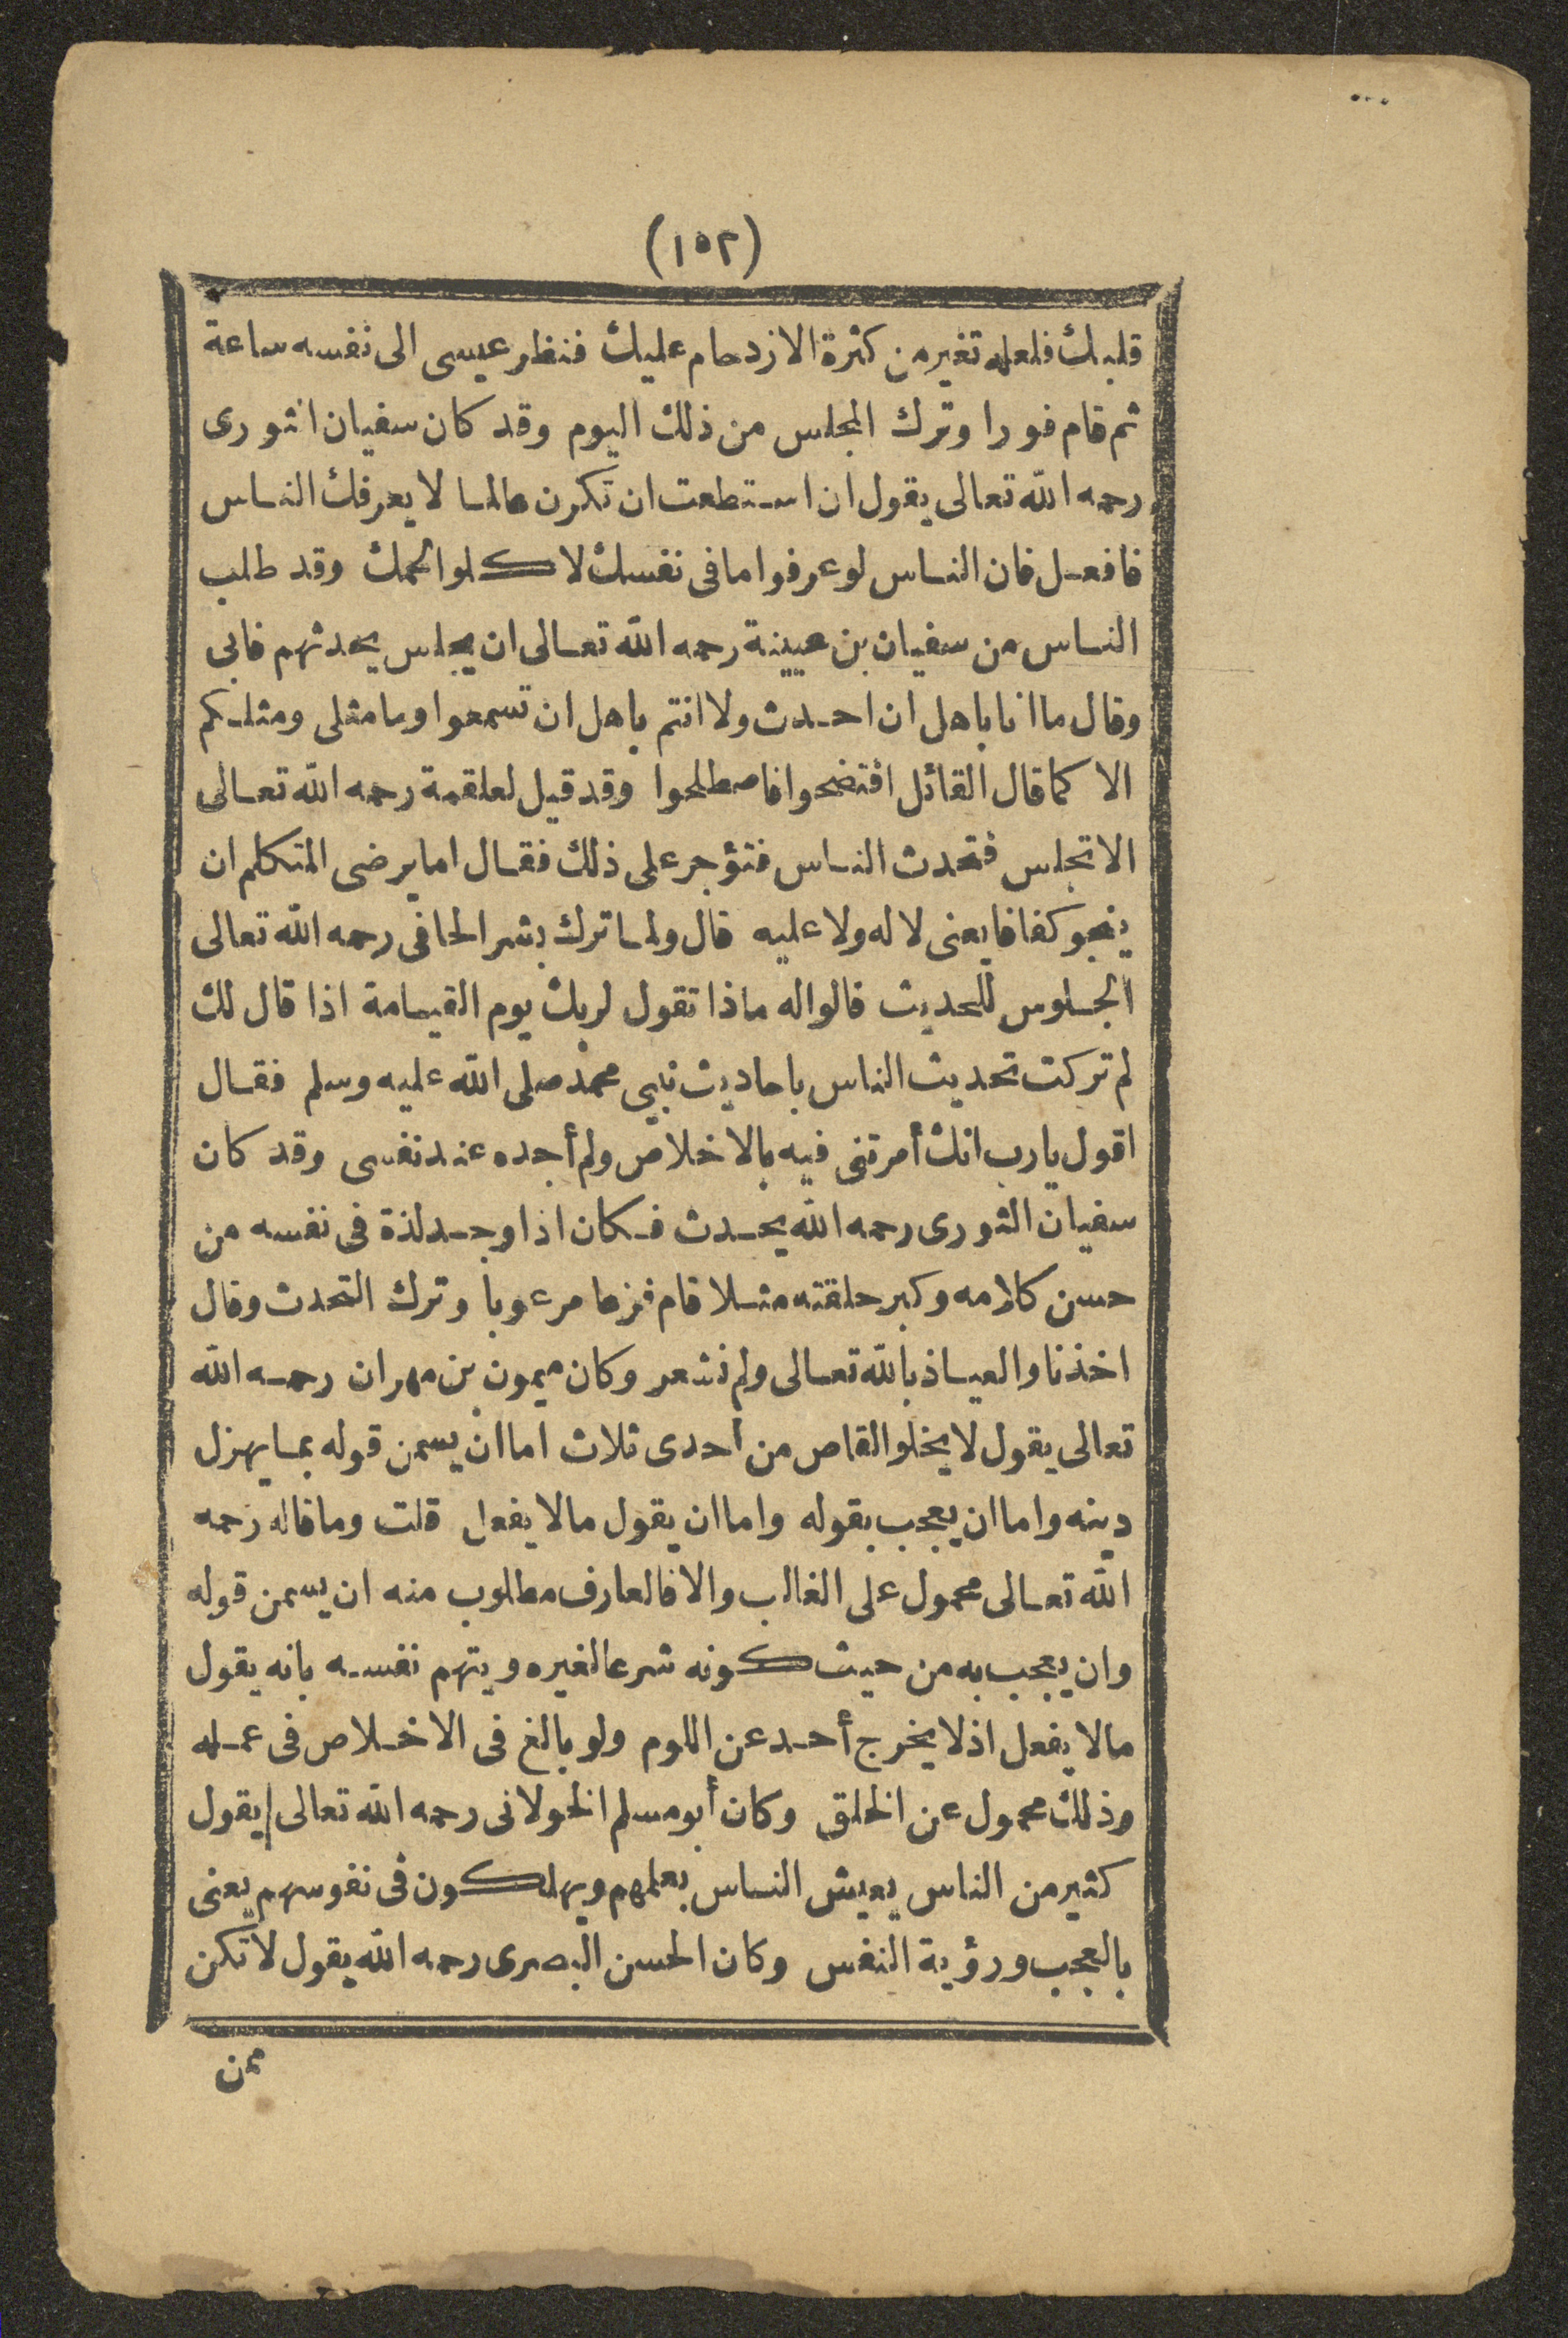 (١٥٢)
قلبك فلعله تغير من كثرة الازدحام عليك فنظر عيسى الى نفسه ساعة
ثم قام فورا وترك المجلس من ذلك اليوم وقد كان سفيان الثورى
رحمه الله تعالى يقول ان استطعت ان تكون عالما لا يعرفك الناس
فافعل فان الناس لو عرفوا ما فى نفسك لاكلوا لحمك وقد طلب
الناس من سفيان بن عيينة رحمه الله تعالى ان يجلس يحدثهم فابى
وقال ما انا باهل ان احدث ولا انتم باهل ان تسمعوا وما مثلى ومثلكم
الا كما قال القائل افتضحوا فاصطلحوا وقد قيل لعلقمة رحمه الله تعالى
الا تجلس فتحدث الناس فتؤجر على ذلك فقال اما يرضى المتكلم ان
ينجو كفافا يعنى لا له ولا عليه قال ولما ترك بشر الحافى رحمه الله تعالى
الجلوس للحديث قالوا له ماذا تقول لربك يوم القيامة اذا قال لك
لم تركت تحديث الناس باحاديث نبيى محمد صلى الله عليه وسلم فقال
اقول يارب انك أمرتنى فيه بالاخلاص ولم أجده عند نفسى وقد كان
سفيان الثورى رحمه الله يحدث فكان اذا وجد لذة فى نفسه من
حسن كلامه وكبر حلقته مثلا قام فزعا مرعوبا وترك التحدث وقال
اخذنا والعياذ بالله تعالى ولم نشعر وكان ميمون بن مهران رحمه الله
تعالى يقول لا يخلو القاص من احدى ثلاث اما ان يسمن قوله بما يهزل
دينه واما ان يعجب بقوله واما ان يقول ما لا يفعل قلت وما قاله رحمه
الله تعالى محمول على الغالب والا فالعارف مطلوب منه ان يسمن قوله
وان يعجب به من حيث كونه شرعا لغيره ويتهم نفسه بانه يقول
ما لا يفعل اذ لا يخرج أحد عن اللوم ولو بالغ فى الاخلاص فى عمله
وذلك محمول عن الخلق وكان أبو مسلم الخولانى رحمه الله تعالى يقول
كثير من الناس يعيش الناس بعلمهم ويهلكون فى نفوسهم يعنى
بالعجب ورؤية النفس وكان الحسن البصرى رحمه الله يقول لا تكن
ممن